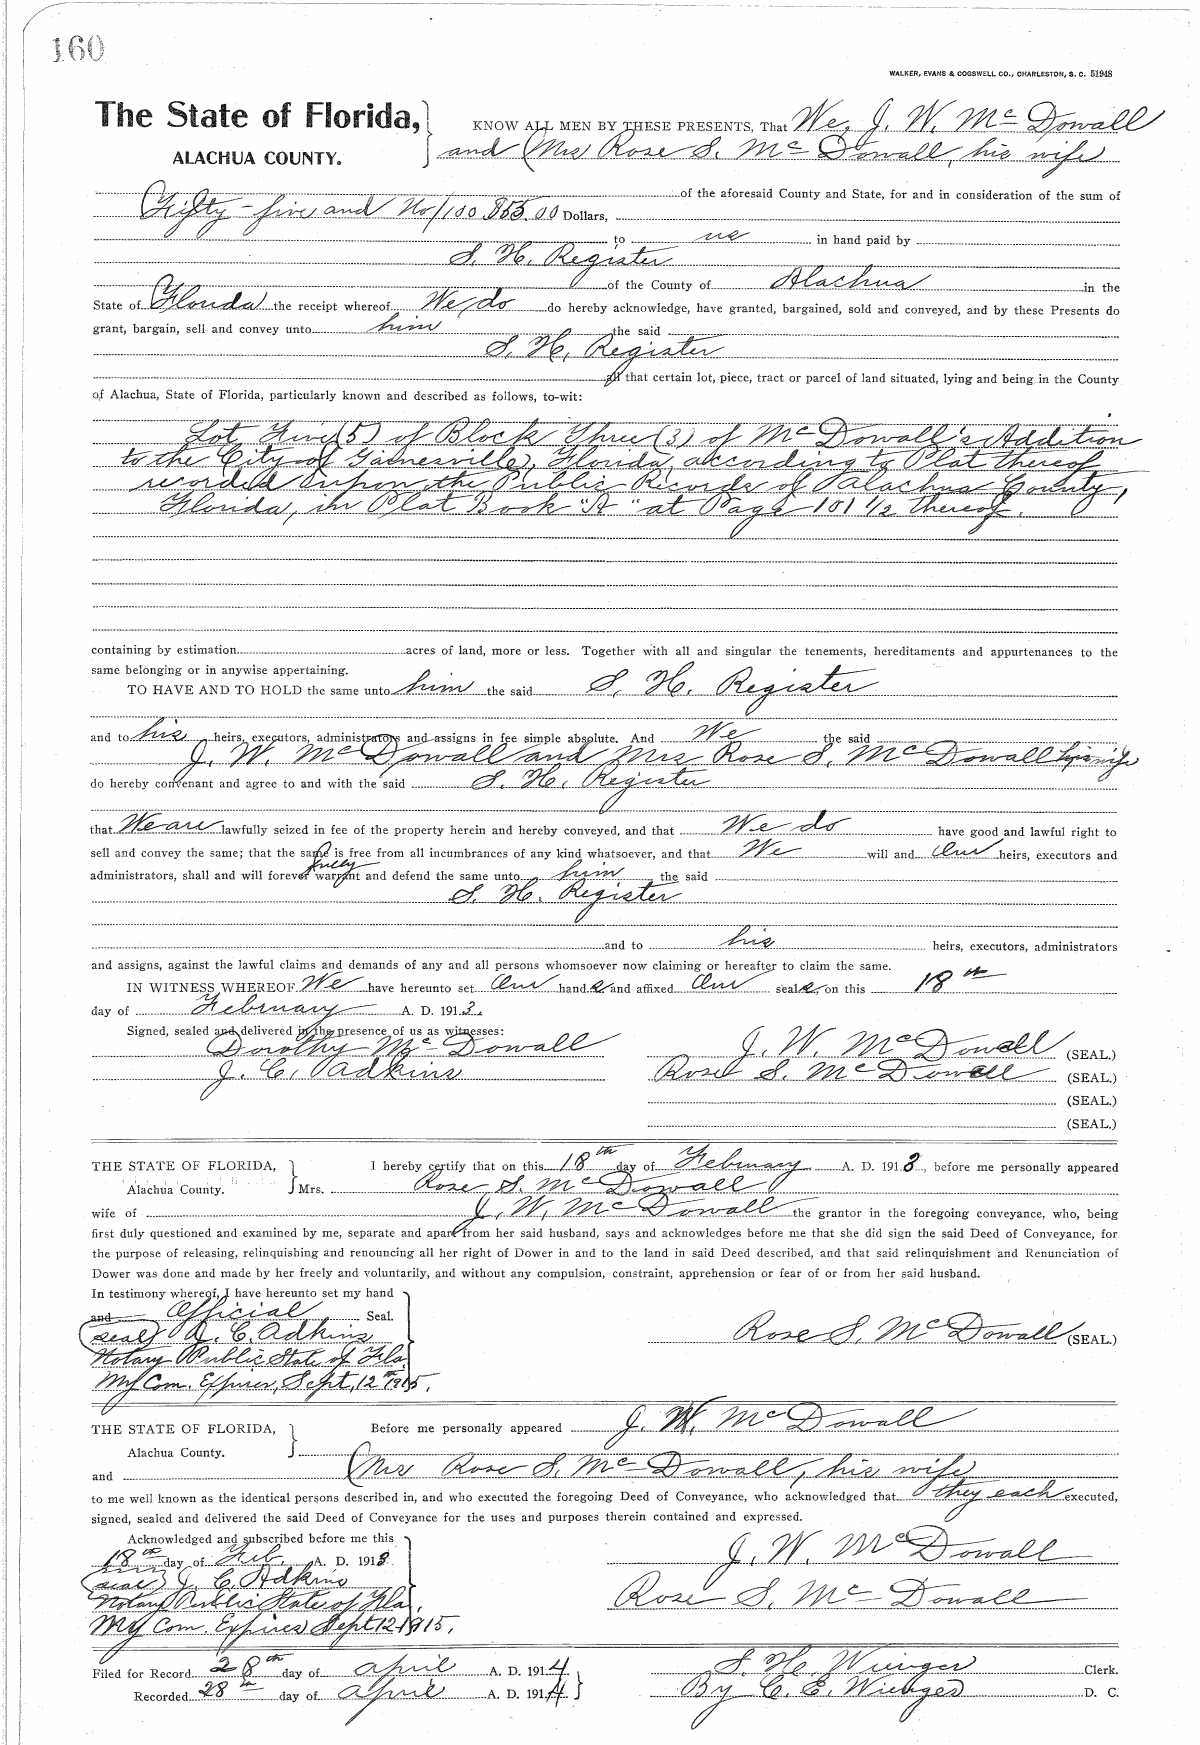 160
WALKER, EVANS & COGSWELL CO., CHARLESTON, S. C. 51948
The State of Florida,
ALACHUA COUNTY.
KNOW ALL MEN BY THESE PRESENTS, That We, J. W. McDowall
and Mrs Rose S. McDowall, his wife
of the aforesaid County and State, for and in consideration of the sum of
Fifty-five and No/100 $55.00 Dollars,
to us in hand paid by
S. H. Register
of the County of Alachua in the
State of Florida the receipt whereof We do do hereby acknowledge, have granted, bargained, sold and conveyed, and by these Presents do
grant, bargain, sell and convey unto him the said
S. H. Register
all that certain lot, piece, tract or parcel of land situated, lying and being in the County
of Alachua, State of Florida, particularly known and described as follows, to-wit:
Lot Five (5) of Block Three (3) of McDowall's Addition
to the City of Gainesville, Florida, according to Plat thereof
recorded upon the Public Records of Alachua County,
Florida, in Plat Book "A" at Page 101 1/2 thereof.
containing by estimation acres of land, more or less. Together with all and singular the tenements, hereditaments and appurtenances to the
same belonging or in anywise appertaining.
TO HAVE AND TO HOLD the same unto him the said S. H. Register
and to his heirs, executors, administrators and assigns in fee simple absolute. And We the said
J. W. McDowall and Mrs Rose S. McDowall his wife
do hereby convenant and agree to and with the said S. H. Register
that We are lawfully seized in fee of the property herein and hereby conveyed, and that We do have good and lawful right to
sell and convey the same; that the same is free from all incumbrances of any kind whatsoever, and that We will and Our heirs, executors and
fully
administrators, shall and will forever warrant and defend the same unto him the said
S. H. Register
and to his heirs, executors, administrators
and assigns, against the lawful claims and demands of any and all persons whomsoever now claiming or hereafter to claim the same.
IN WITNESS WHEREOF We have hereunto set Our hands and affixed Our seals, on this 18th
day of February A. D. 1913.
Signed, sealed and delivered in the presence of us as witnesses:
Dorothy McDowall J. W. McDowall (SEAL.)
J. C. Adkins Rose S. McDowall (SEAL.)
(SEAL.)
(SEAL.)
THE STATE OF FLORIDA, I hereby certify that on this 18th day of February A. D. 1913, before me personally appeared
Alachua County. Mrs. Rose S. McDowall
wife of J. W. McDowall the grantor in the foregoing conveyance, who, being
first duly questioned and examined by me, separate and apart from her said husband, says and acknowledges before me that she did sign the said Deed of Conveyance, for
the purpose of releasing, relinquishing and renouncing all her right of Dower in and to the land in said Deed described, and that said relinquishment and Renunciation of
Dower was done and made by her freely and voluntarily, and without any compulsion, constraint, apprehension or fear of or from her said husband.
In testimony whereof, I have hereunto set my hand
and Official Seal.
(seal) J. C. Adkins Rose S. McDowall (SEAL.)
Notary Public State of Fla
My Com. Expires, Sept, 12th 1915.
THE STATE OF FLORIDA, Before me personally appeared J. W. McDowall
Alachua County.
and Mrs Rose S. McDowall, his wife
to me well known as the identical persons described in, and who executed the foregoing Deed of Conveyance, who acknowledged that they each executed,
signed, sealed and delivered the said Deed of Conveyance for the uses and purposes therein contained and expressed.
Acknowledged and subscribed before me this
18th day of Feb. A. D. 1913 J. W. McDowall
(seal) J. C. Adkins
Notary Public State of Fla. Rose S. McDowall
My Com. Expires Sept 12 1915.
Filed for Record 28th day of April A. D. 1914 S. H. Wienges Clerk.
Recorded 28th day of April A. D. 1914 By C. E. Wienges D. C.